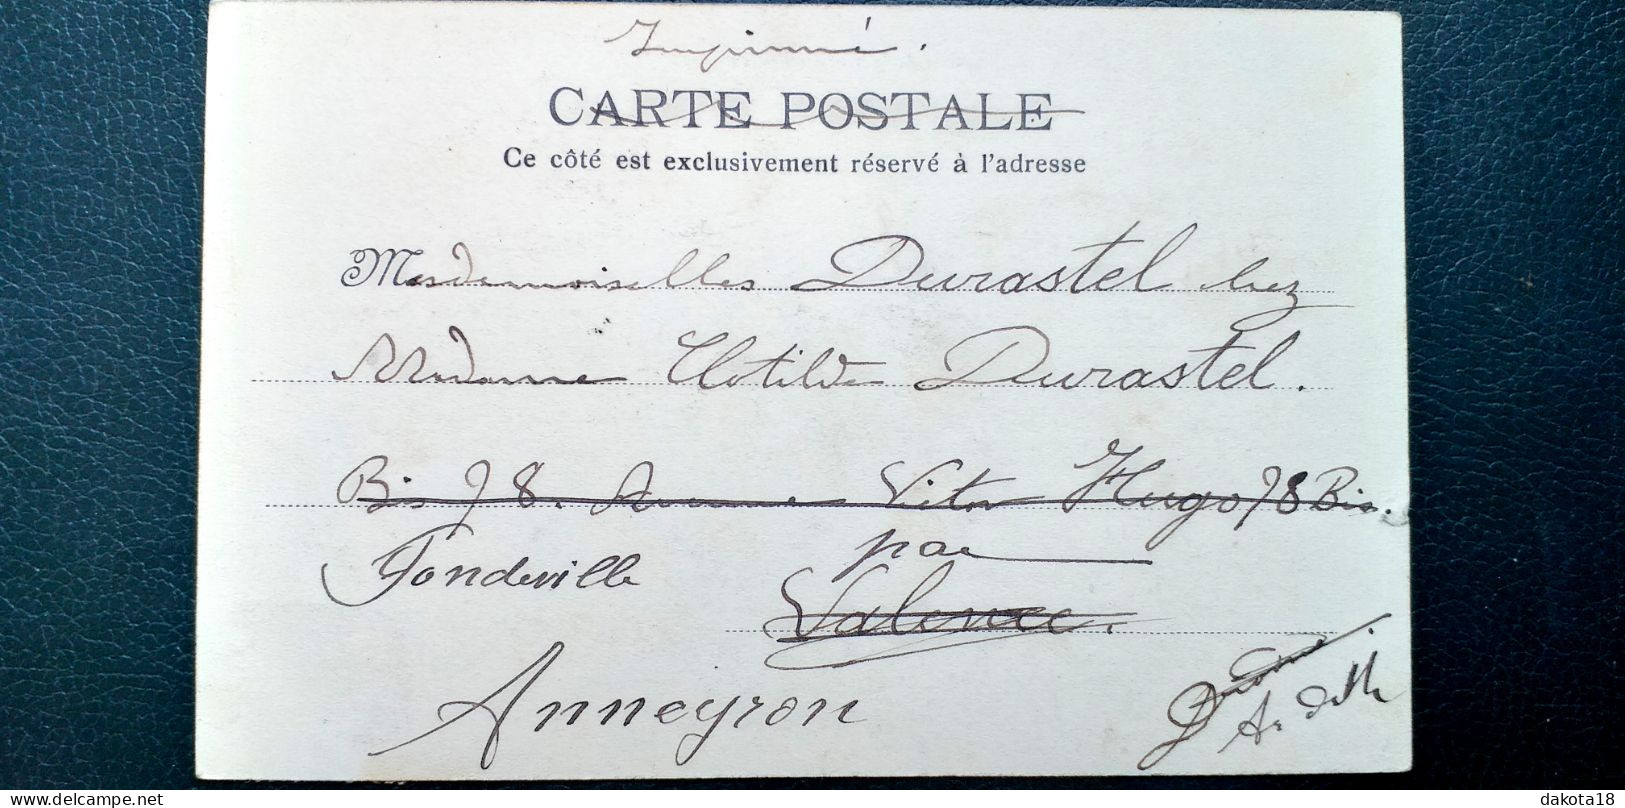 Imprimé.
CARTE POSTALE
Ce côté est exclusivement réservé à l'adresse
Mesdemoiselles Durastel chez
Madame Clotilde Durastel.
Bis 78. Avenue Vitor Hugo 78 Bis.
Fondeville par
Valence.
Anneyron
delcampe.net
dakota18